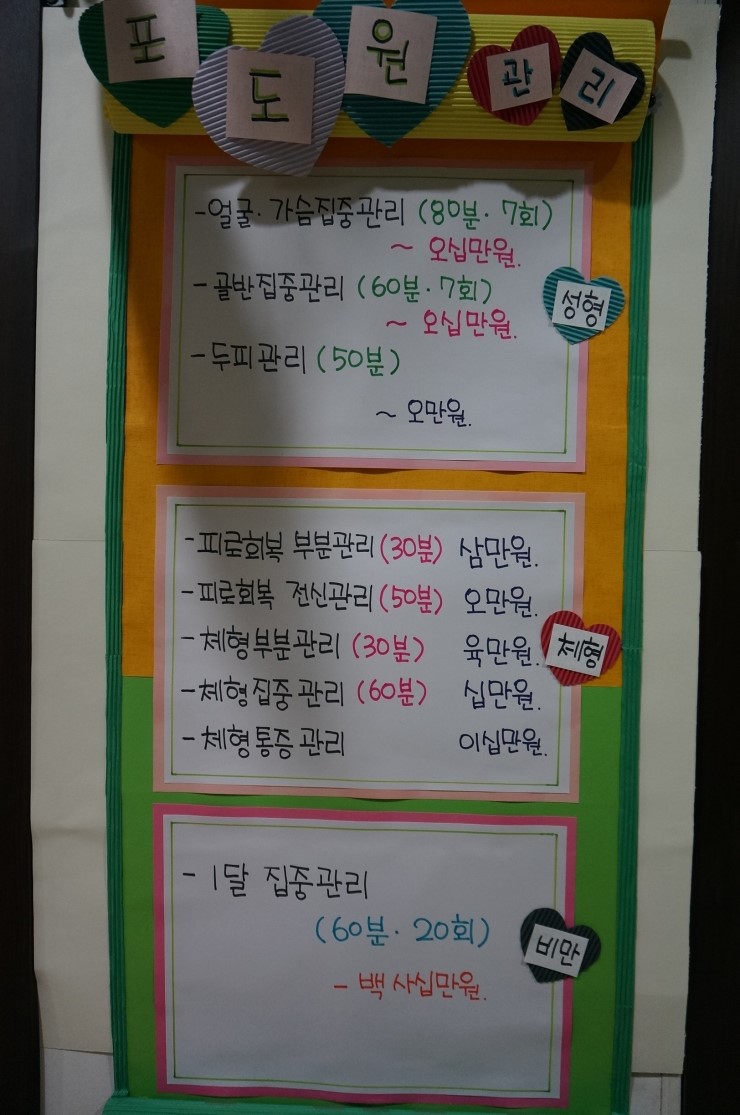 포도원 관리
-얼굴·가슴집중관리 (80분·7회)
~ 오십만원.
-골반집중관리 (60분·7회)
~ 오십만원.
성형
-두피관리 (50분)
~ 오만원.
-피로회복 부분관리 (30분) 삼만원.
-피로회복 전신관리 (50분) 오만원.
-체형부분관리 (30분) 육만원.
체형
-체형집중관리 (60분) 십만원.
-체형통증관리 이십만원.
-1달 집중관리
(60분·20회)
비만
- 백사십만원.